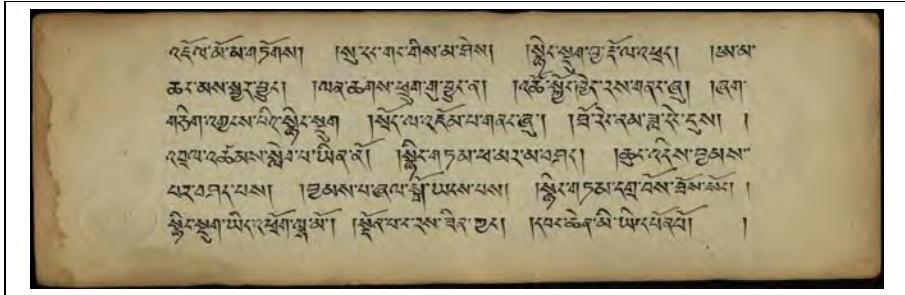 འཛོལ་མོ་མ་གཏོགས། །སུ་དང་གང་གིས་མ་ཤེས། །སྙིང་སྡུག་བྱ་རྡོ་ལ་འཕྲད། །ཨ་མ་
ཆང་མས་སྦྱར་བྱུང་། །ལན་ཆགས་ཕྲུག་གུ་བྱུང་ན། །འཚོ་སྐྱོང་ཁྱེད་རས་གནང་ཞུ། །ཞག་
གཅིག་འགྲངས་པའི་སྙིང་སྡུག །སྤོད་ལ་འཛོམ་པ་གནང་ཞུ། །ཐོ་རེ་ནམ་ཟླ་རེ་དུས། །
འབྲལ་འཚོམས་སླེབ་པ་ཡིན་ནོ། །སྙིང་གཏམ་ཕ་མར་མ་བཤད། །ཆུང་འདྲིས་བྱམས་
པར་བཤད་པས། །བྱམས་པ་ཞལ་སྤྲོ་ཡངས་པས། །སྙིང་གཏམ་དགྲ་བོས་ཟོས་སོང་། །
སྙིང་སྡུག་ཡིད་འཕྲོག་ལྷ་མོ། །སྔོན་པ་ང་རས་ཟིན་ཀྱང་། །དབང་ཆེན་མི་ཡི་དཔོན་པོ། །